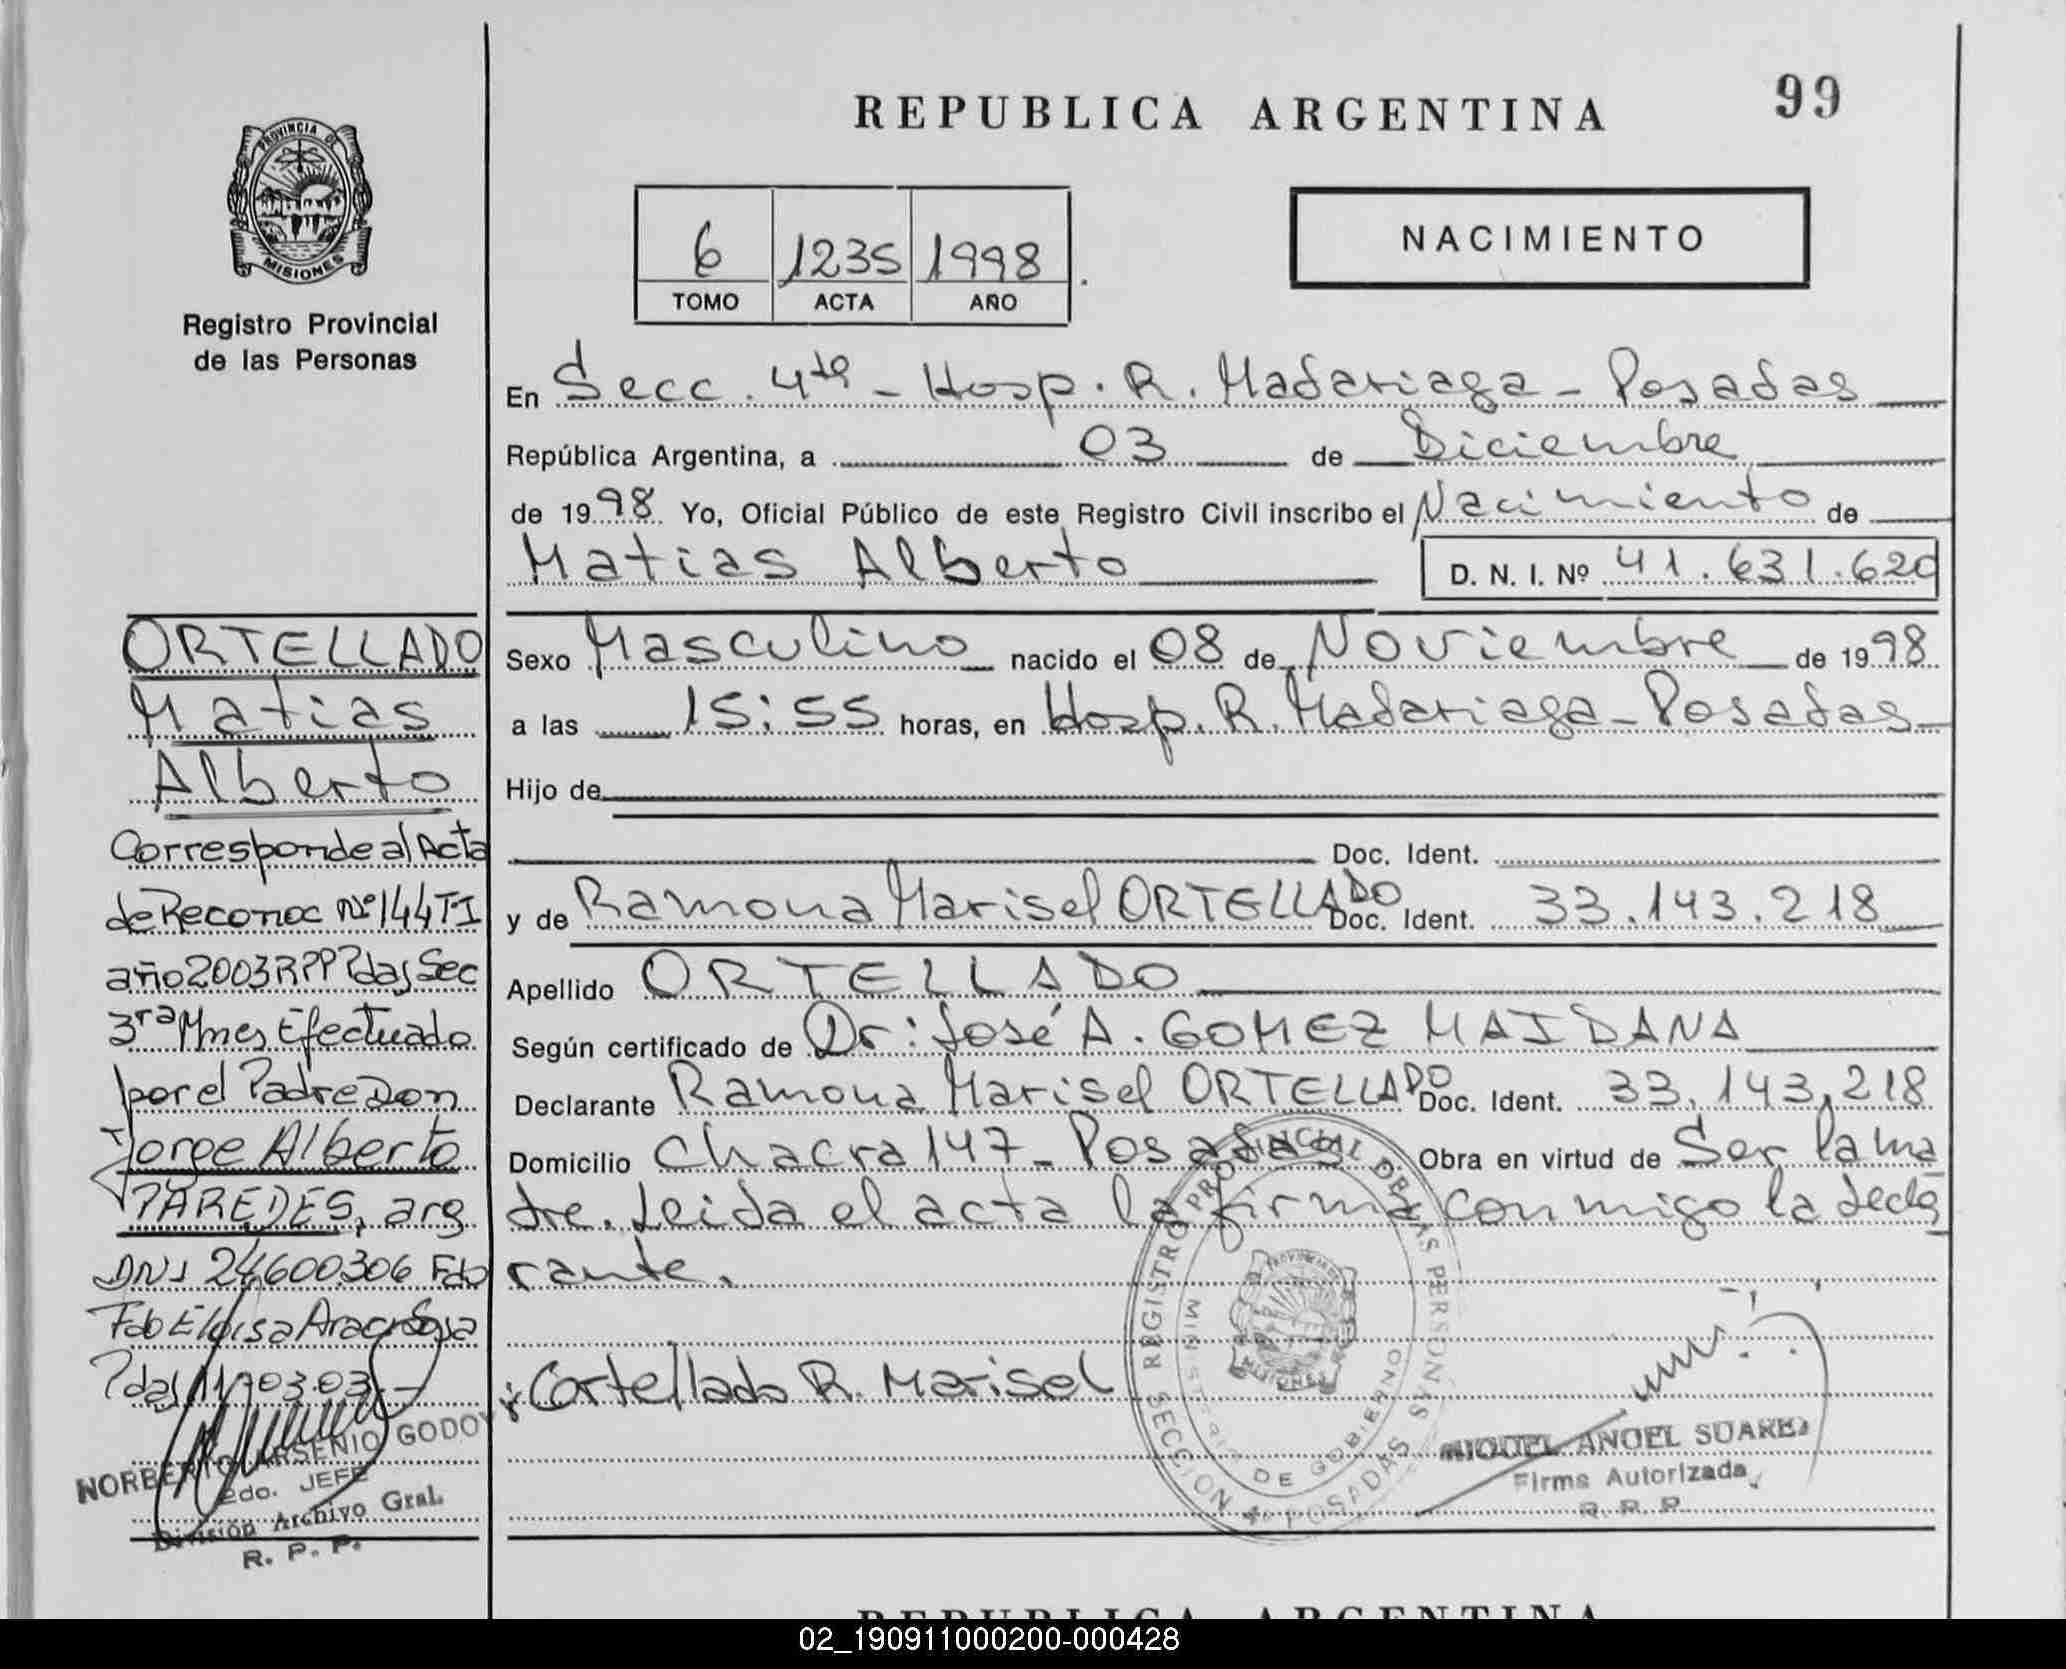 REPUBLICA ARGENTINA
99
PROVINCIA DE
MISIONES
Registro Provincial
de las Personas
6 1235 1998
TOMO ACTA AÑO
NACIMIENTO
En Secc. 4ta - Hosp. R. Madariaga - Posadas
República Argentina, a 03 de Diciembre
de 1998 Yo, Oficial Público de este Registro Civil inscribo el Nacimiento de
Matias Alberto D. N. I. Nº 41.631.620
Sexo Masculino nacido el 08 de Noviembre de 1998
a las 15:55 horas, en Hosp. R. Madariaga - Posadas
Hijo de
Doc. Ident.
y de Ramona Marisel ORTELLADO Doc. Ident. 33.143.218
Apellido ORTELLADO
Según certificado de Dr: José A. GOMEZ MAIDANA
Declarante Ramona Marisel ORTELLADO Doc. Ident. 33.143.218
Domicilio Chacra 147 - Posadas Obra en virtud de Ser la ma
dre. Leida el acta la firma conmigo la decla
rante.
Cortellado R. Marisel
REGISTRO PROVINCIAL DE LAS PERSONAS
MINISTERIO DE GOBIERNO
SECCION 4º POSADAS
MIGUEL ANGEL SUAREZ
Firma Autorizada
R. R. P.
ORTELLADO
Matias
Alberto
Corresponde al Acta
de Reconoc Nº 144 T I
año 2003 RPP Pdas Sec
3ra Mnes Efectuado
por el Padre Don
Jorge Alberto
PAREDES, arg
DNI 24600.306 Fdo
Fdo Eloisa Aracy Sosa
Pdas 11.03.03.-
NORBERTO ARSENIO GODOY
2do. JEFE
División Archivo Gral.
R. P. P.
REPUBLICA ARGENTINA
02_190911000200-000428